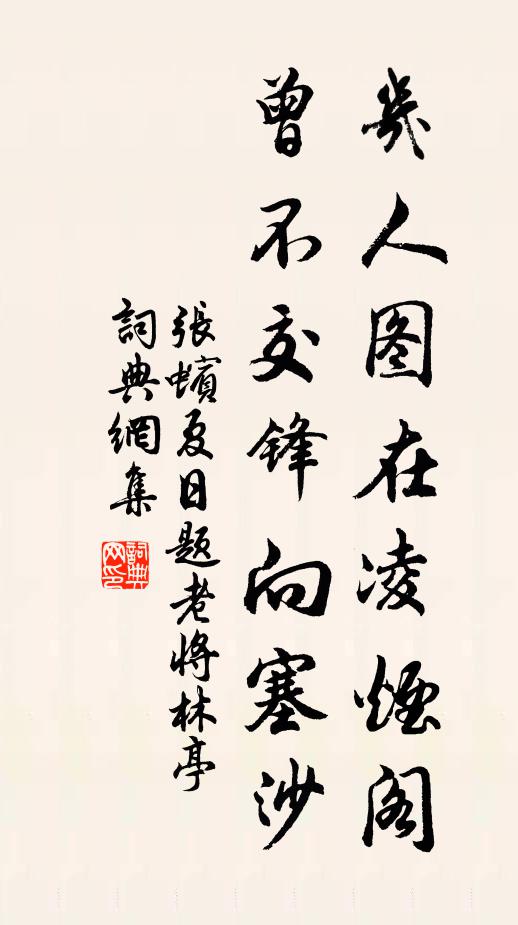 幾人图在凌煙阁
曾不交锋向塞沙
張蠙夏日題老將林亭
詞典網集
詞典
网印